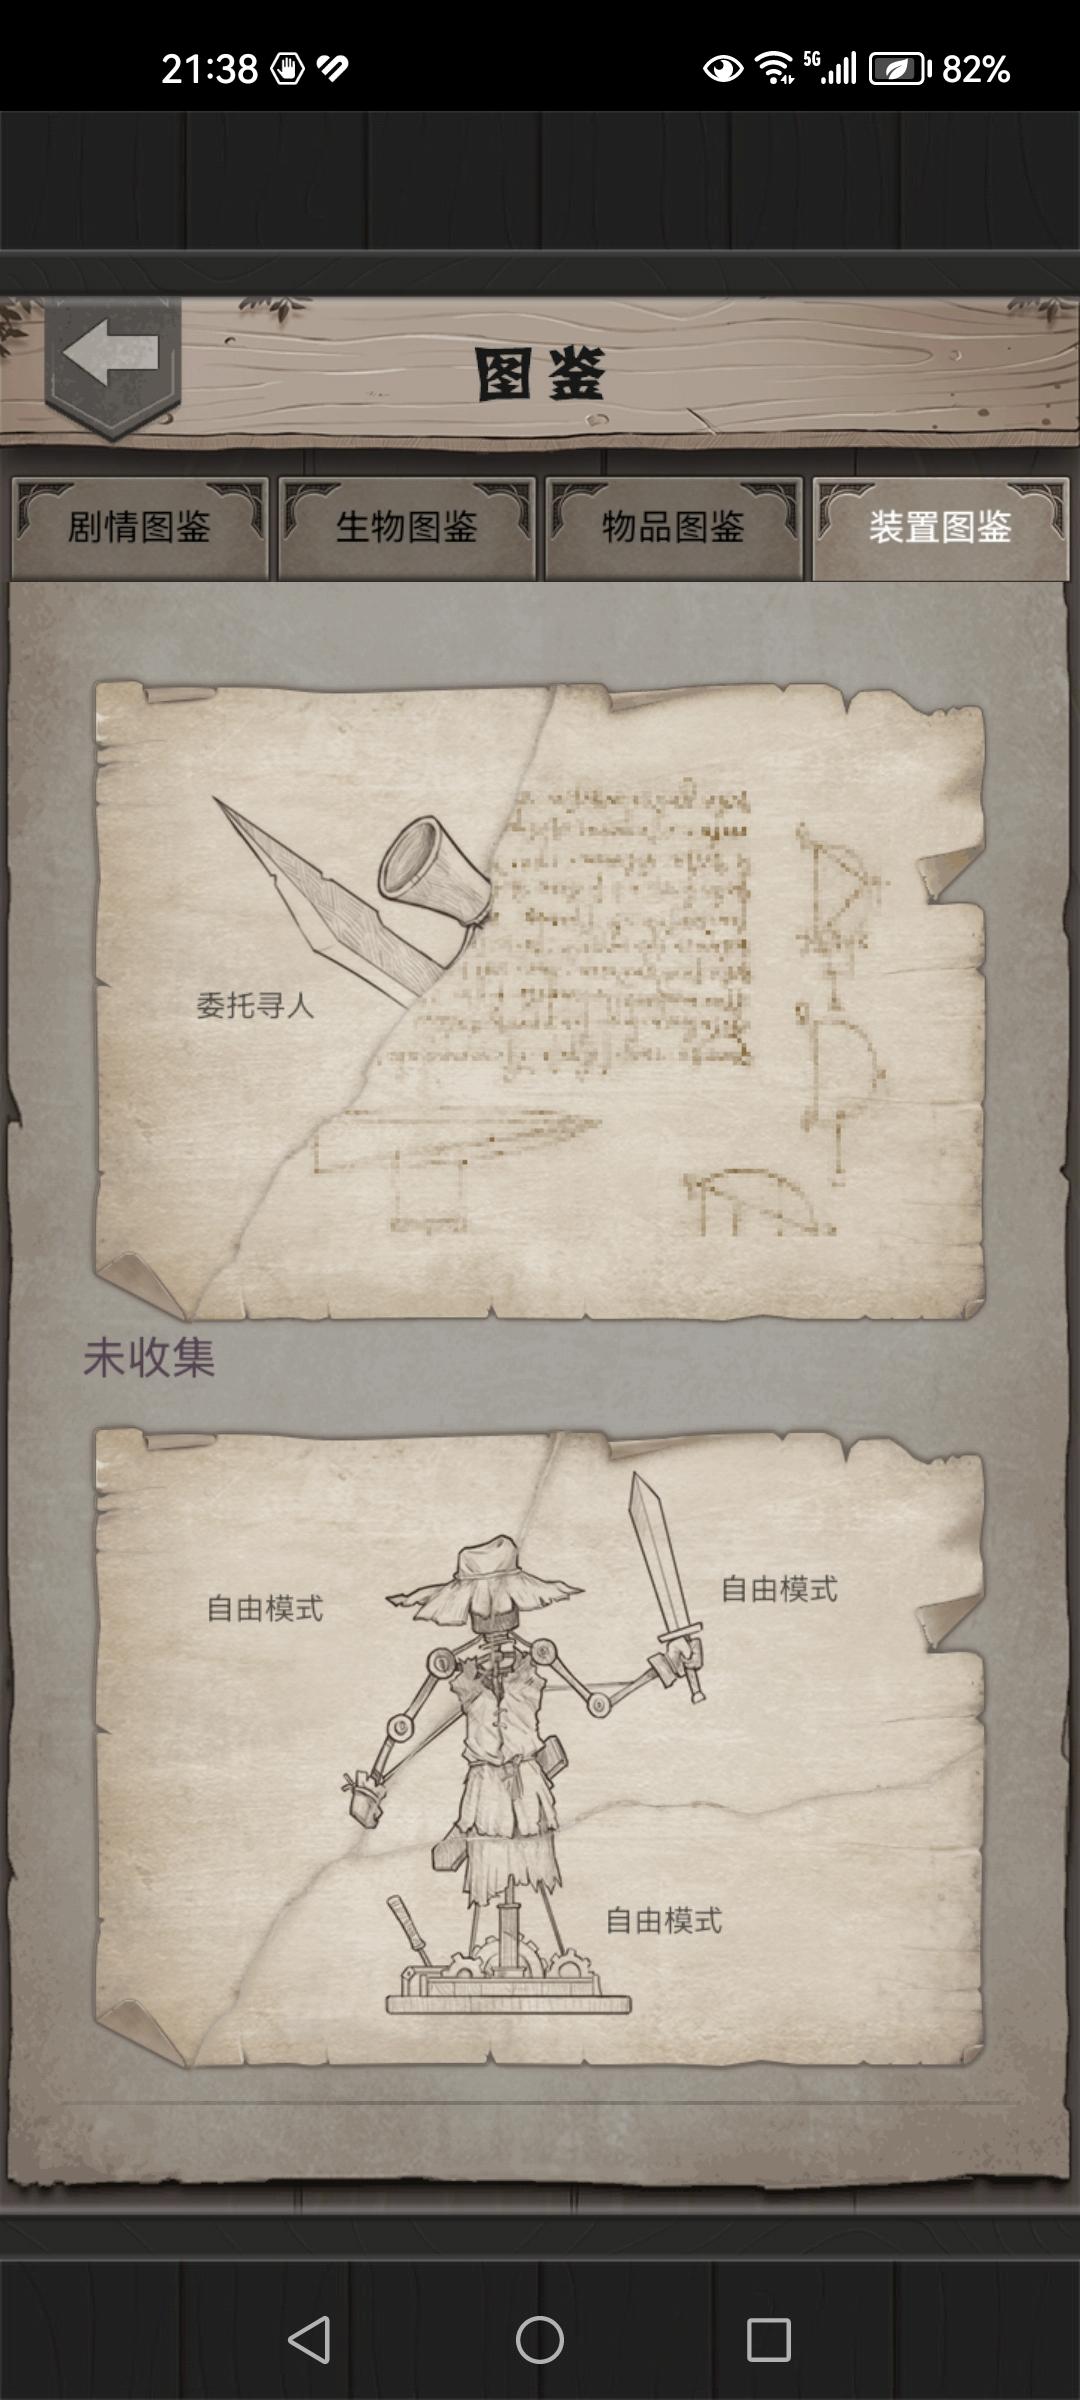 21:38 5G 82%
图鉴
剧情图鉴 生物图鉴 物品图鉴 装置图鉴
委托寻人
未收集
自由模式
自由模式
自由模式